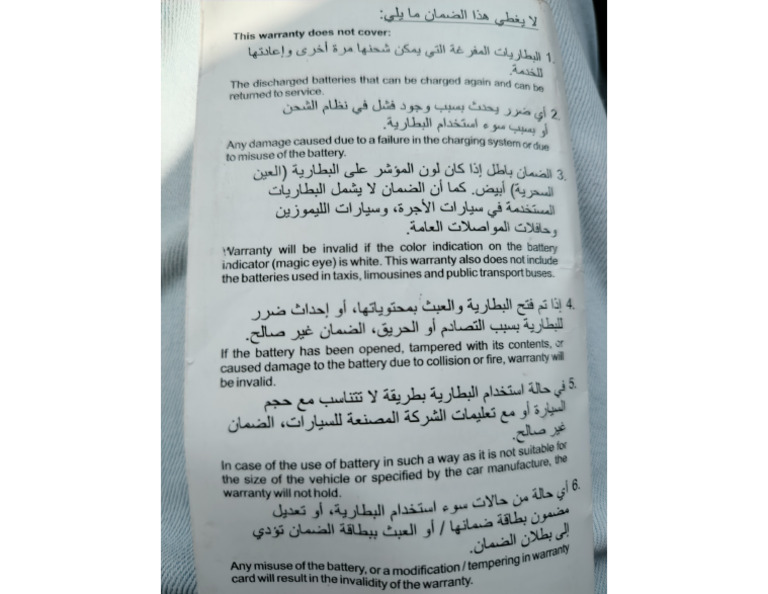 لا يغطي هذا الضمان ما يلي:
This warranty does not cover:
1. البطاريات المفرغة التي يمكن شحنها مرة أخرى وإعادتها
للخدمة.
The discharged batteries that can be charged again and can be
returned to service.
2. أي ضرر يحدث بسبب وجود فشل في نظام الشحن
أو بسبب سوء استخدام البطارية.
Any damage caused due to a failure in the charging system or due
to misuse of the battery.
3. الضمان باطل إذا كان لون المؤشر على البطارية (العين
السحرية) أبيض. كما أن الضمان لا يشمل البطاريات
المستخدمة في سيارات الأجرة، وسيارات الليموزين
وحافلات المواصلات العامة.
Warranty will be invalid if the color indication on the battery
indicator (magic eye) is white. This warranty also does not include
the batteries used in taxis, limousines and public transport buses.
4. إذا تم فتح البطارية والعبث بمحتوياتها، أو إحداث ضرر
للبطارية بسبب التصادم أو الحريق، الضمان غير صالح.
If the battery has been opened, tampered with its contents, or
caused damage to the battery due to collision or fire, warranty will
be invalid.
5. في حالة استخدام البطارية بطريقة لا تتناسب مع حجم
السيارة أو مع تعليمات الشركة المصنعة للسيارات، الضمان
غير صالح.
In case of the use of battery in such a way as it is not suitable for
the size of the vehicle or specified by the car manufacture, the
warranty will not hold.
6. أي حالة من حالات سوء استخدام البطارية، أو تعديل
مضمون بطاقة ضمانها / أو العبث ببطاقة الضمان تؤدي
إلى بطلان الضمان.
Any misuse of the battery, or a modification / tempering in warranty
card will result in the invalidity of the warranty.